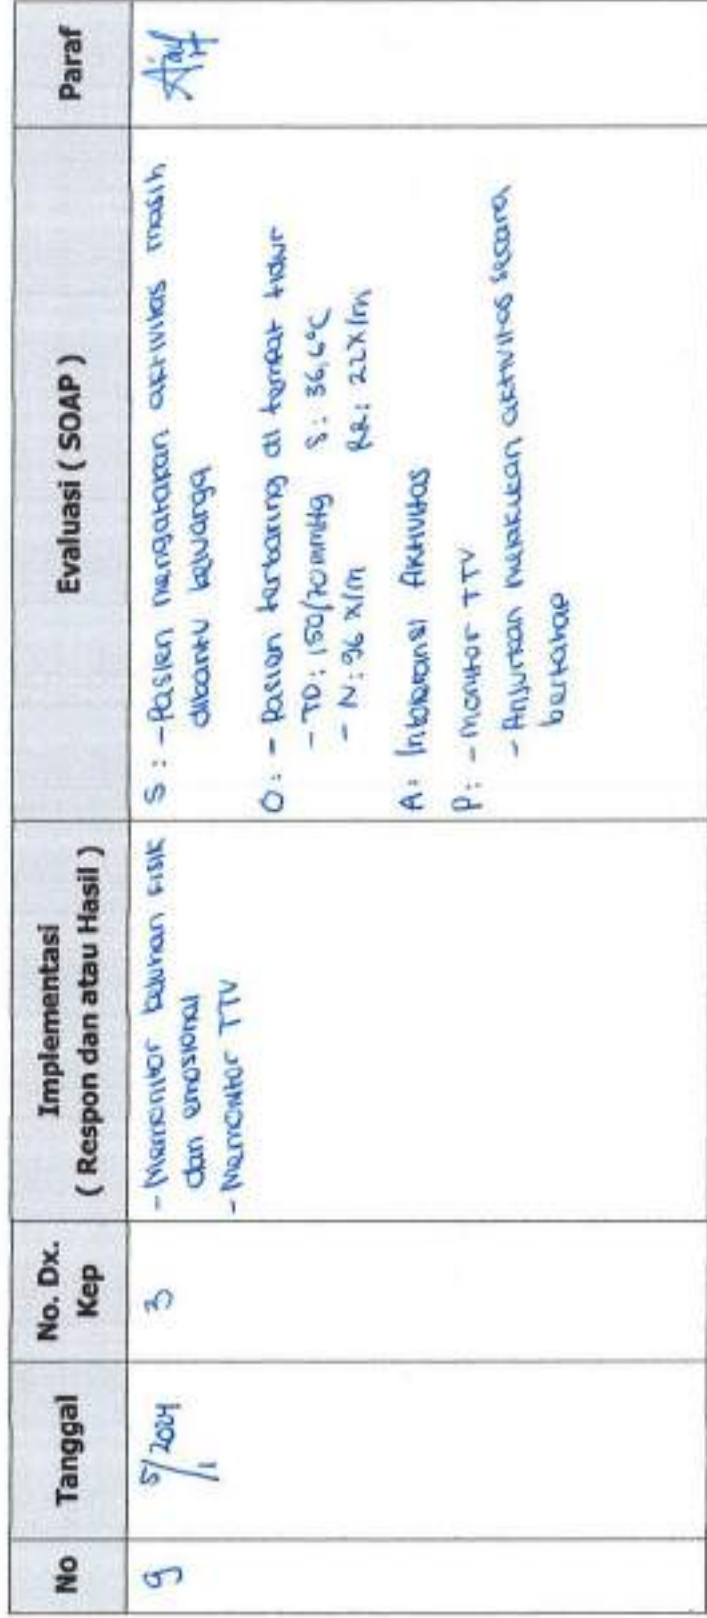 No
Tanggal
No. Dx.
Kep
Implementasi
( Respon dan atau Hasil )
Evaluasi ( SOAP )
Paraf
9
5/1 2024
3
- Memonitor keluhan fisik
dan emosional
- Memonitor TTV
S : - Pasien mengatakan aktivitas masih
dibantu keluarga
O : - Pasien terbaring di tempat tidur
- TD : 150/70 mmHg S : 36,6°C
- N : 96 x/m RR : 22x/m
A : Intoleransi Aktivitas
P : - Monitor TTV
- Anjurkan melakukan aktivitas secara
bertahap